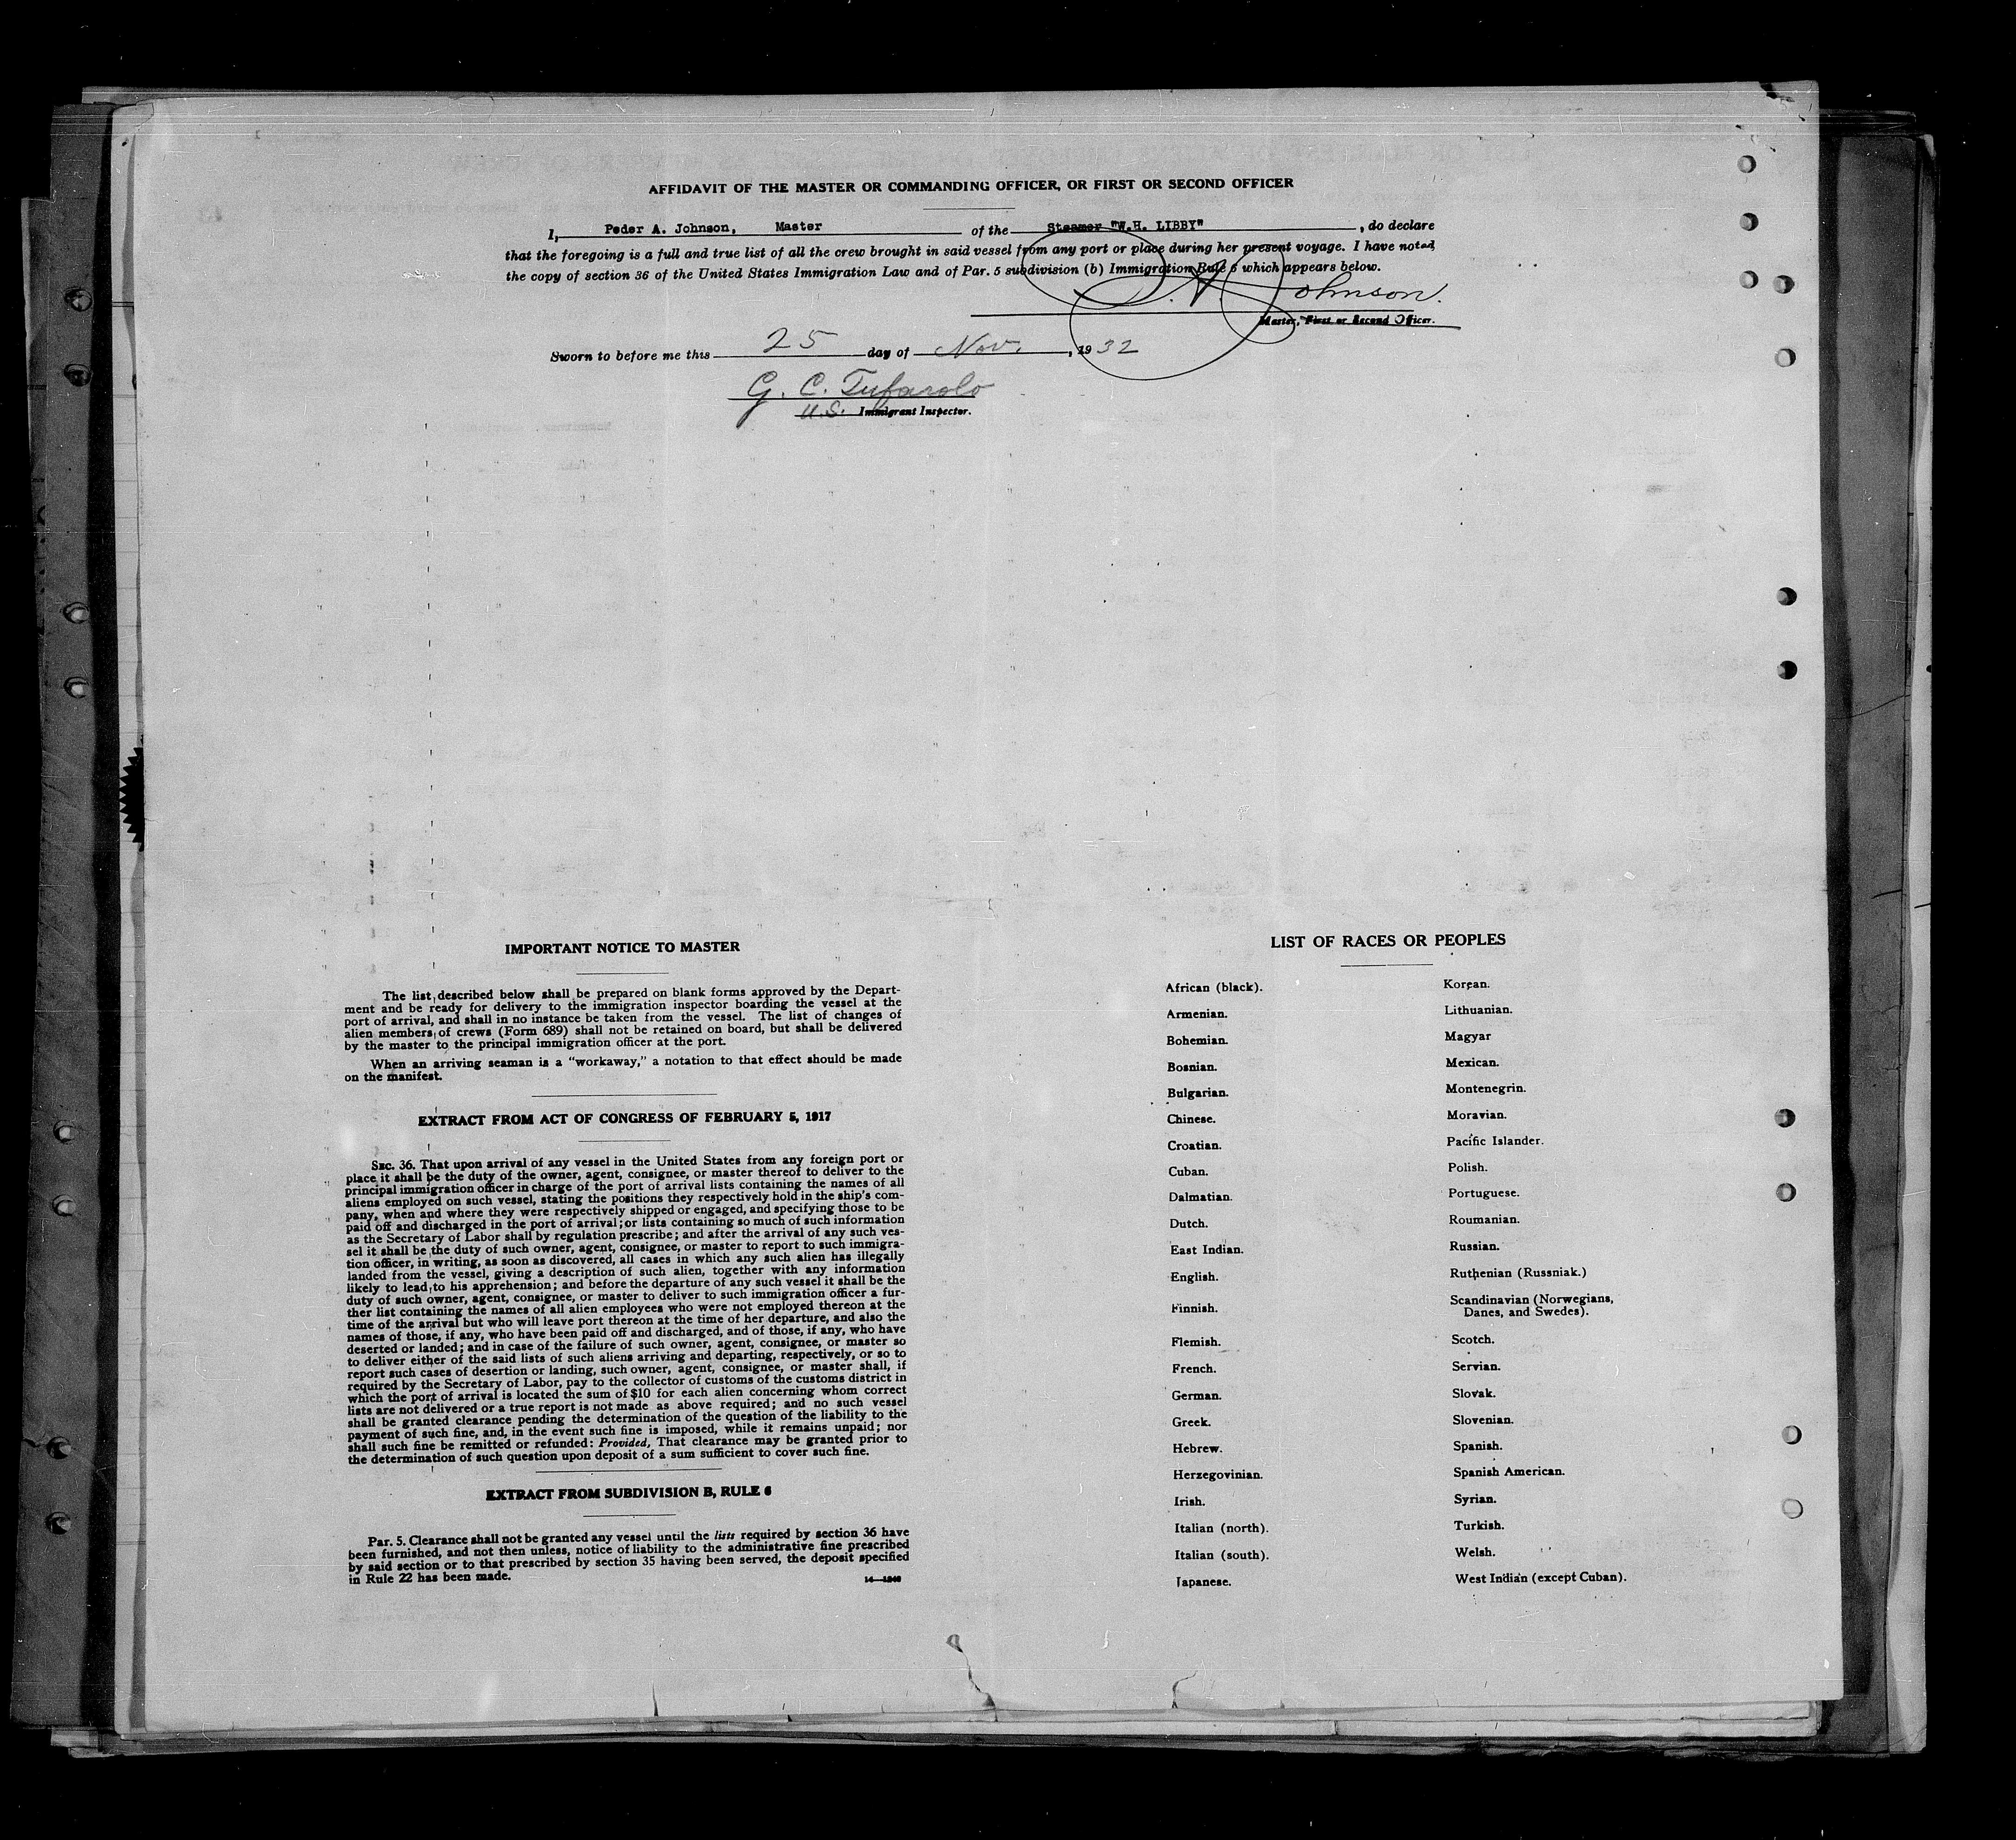 AFFIDAVIT OF THE MASTER OR COMMANDING OFFICER, OR FIRST OR SECOND OFFICER
I, Peder A. Johnson, Master of the Steamer "W.H. LIBBY", do declare
that the foregoing is a full and true list of all the crew brought in said vessel from any port or place during her present voyage. I have noted
the copy of section 36 of the United States Immigration Law and of Par. 5 subdivision (b) Immigration Rule 6 which appears below.
P. A. Johnson.
Master, First or Second Officer.
Sworn to before me this 25 day of Nov., 1932
G. C. Tufarolo
U.S. Immigrant Inspector.
IMPORTANT NOTICE TO MASTER
The list described below shall be prepared on blank forms approved by the Depart-
ment and be ready for delivery to the immigration inspector boarding the vessel at the
port of arrival, and shall in no instance be taken from the vessel. The list of changes of
alien members of crews (Form 689) shall not be retained on board, but shall be delivered
by the master to the principal immigration officer at the port.
When an arriving seaman is a "workaway," a notation to that effect should be made
on the manifest.
EXTRACT FROM ACT OF CONGRESS OF FEBRUARY 5, 1917
SEC. 36. That upon arrival of any vessel in the United States from any foreign port or
place it shall be the duty of the owner, agent, consignee, or master thereof to deliver to the
principal immigration officer in charge of the port of arrival lists containing the names of all
aliens employed on such vessel, stating the positions they respectively hold in the ship's com-
pany, when and where they were respectively shipped or engaged, and specifying those to be
paid off and discharged in the port of arrival; or lists containing so much of such information
as the Secretary of Labor shall by regulation prescribe; and after the arrival of any such ves-
sel it shall be the duty of such owner, agent, consignee, or master to report to such immigra-
tion officer, in writing, as soon as discovered, all cases in which any such alien has illegally
landed from the vessel, giving a description of such alien, together with any information
likely to lead to his apprehension; and before the departure of any such vessel it shall be the
duty of such owner, agent, consignee, or master to deliver to such immigration officer a fur-
ther list containing the names of all alien employees who were not employed thereon at the
time of the arrival but who will leave port thereon at the time of her departure, and also the
names of those, if any, who have been paid off and discharged, and of those, if any, who have
deserted or landed; and in case of the failure of such owner, agent, consignee, or master so
to deliver either of the said lists of such aliens arriving and departing, respectively, or so to
report such cases of desertion or landing, such owner, agent, consignee, or master shall, if
required by the Secretary of Labor, pay to the collector of customs of the customs district in
which the port of arrival is located the sum of $10 for each alien concerning whom correct
lists are not delivered or a true report is not made as above required; and no such vessel
shall be granted clearance pending the determination of the question of the liability to the
payment of such fine, and, in the event such fine is imposed, while it remains unpaid; nor
shall such fine be remitted or refunded: Provided, That clearance may be granted prior to
the determination of such question upon deposit of a sum sufficient to cover such fine.
EXTRACT FROM SUBDIVISION B, RULE 6
Par. 5. Clearance shall not be granted any vessel until the lists required by section 36 have
been furnished, and not then unless, notice of liability to the administrative fine prescribed
by said section or to that prescribed by section 35 having been served, the deposit specified
in Rule 22 has been made.
LIST OF RACES OR PEOPLES
African (black).
Armenian.
Bohemian.
Bosnian.
Bulgarian.
Chinese.
Croatian.
Cuban.
Dalmatian.
Dutch.
East Indian.
English.
Finnish.
Flemish.
French.
German.
Greek.
Hebrew.
Herzegovinian.
Irish.
Italian (north).
Italian (south).
Japanese.
Korean.
Lithuanian.
Magyar
Mexican.
Montenegrin.
Moravian.
Pacific Islander.
Polish.
Portuguese.
Roumanian.
Russian.
Ruthenian (Russniak.)
Scandinavian (Norwegians,
Danes, and Swedes).
Scotch.
Servian.
Slovak.
Slovenian.
Spanish.
Spanish American.
Syrian.
Turkish.
Welsh.
West Indian (except Cuban).